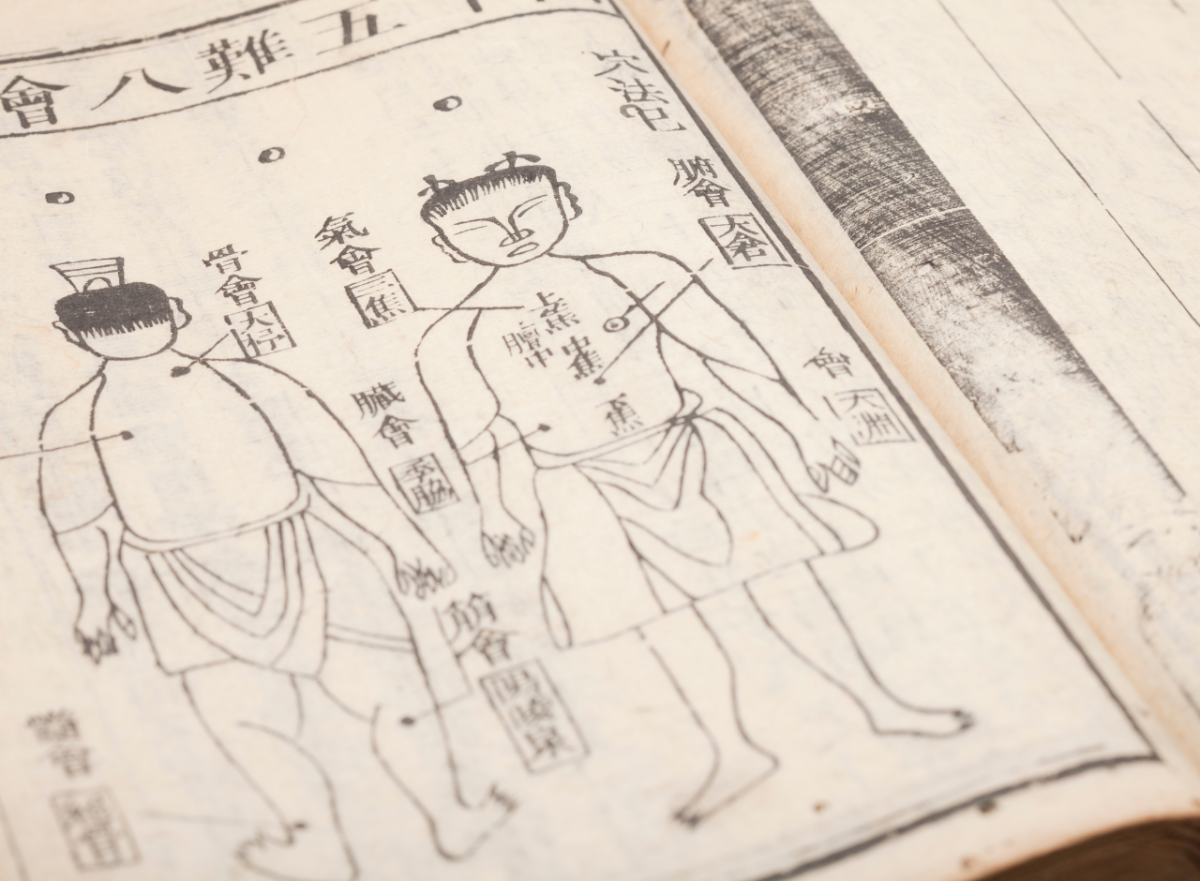 五難八會
穴法
腑會
大倉
會
氣會
三焦
上焦
膻中
中焦
焦
骨會
大杼
臟會
季脇
筋會
陽陵泉